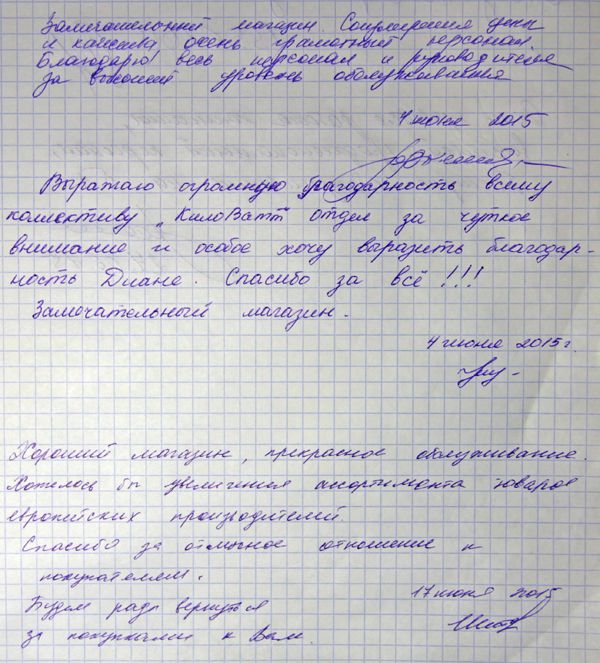 Замечательный магазин Соизмерения цены
и качества очень грамотный персонал
Благодарю весь персонал и руководителя
за высокий уровень обслуживания
4 июня 2015
Выражаю огромную благодарность всему
коллективу „КилоВатт" отдел за чуткое
внимание и особое хочу выразить благодар-
ность Диане. Спасибо за всё!!!
Замечательный магазин.
4 июня 2015 г.
Хороший магазин, прекрасное обслуживание.
Хотелось бы увеличения ассортимента товаров
европейских производителей.
Спасибо за отличное отношение к
покупателям.
17 июня 2015
Будем рады вернуться
за покупками к Вам.